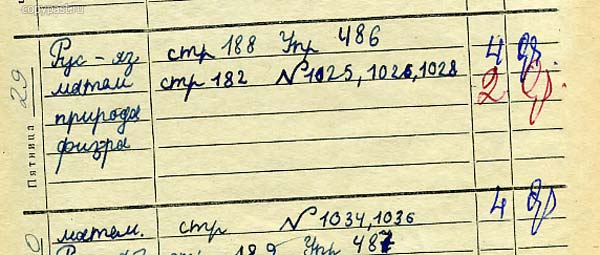 copypast.ru
Пятница 29
Рус-яз стр 188 Упр 486 4
матем стр 182 N 1025, 1026, 1028 2
природа
физра
матем. стр N 1034, 1036 4
стр 189 Упр 487